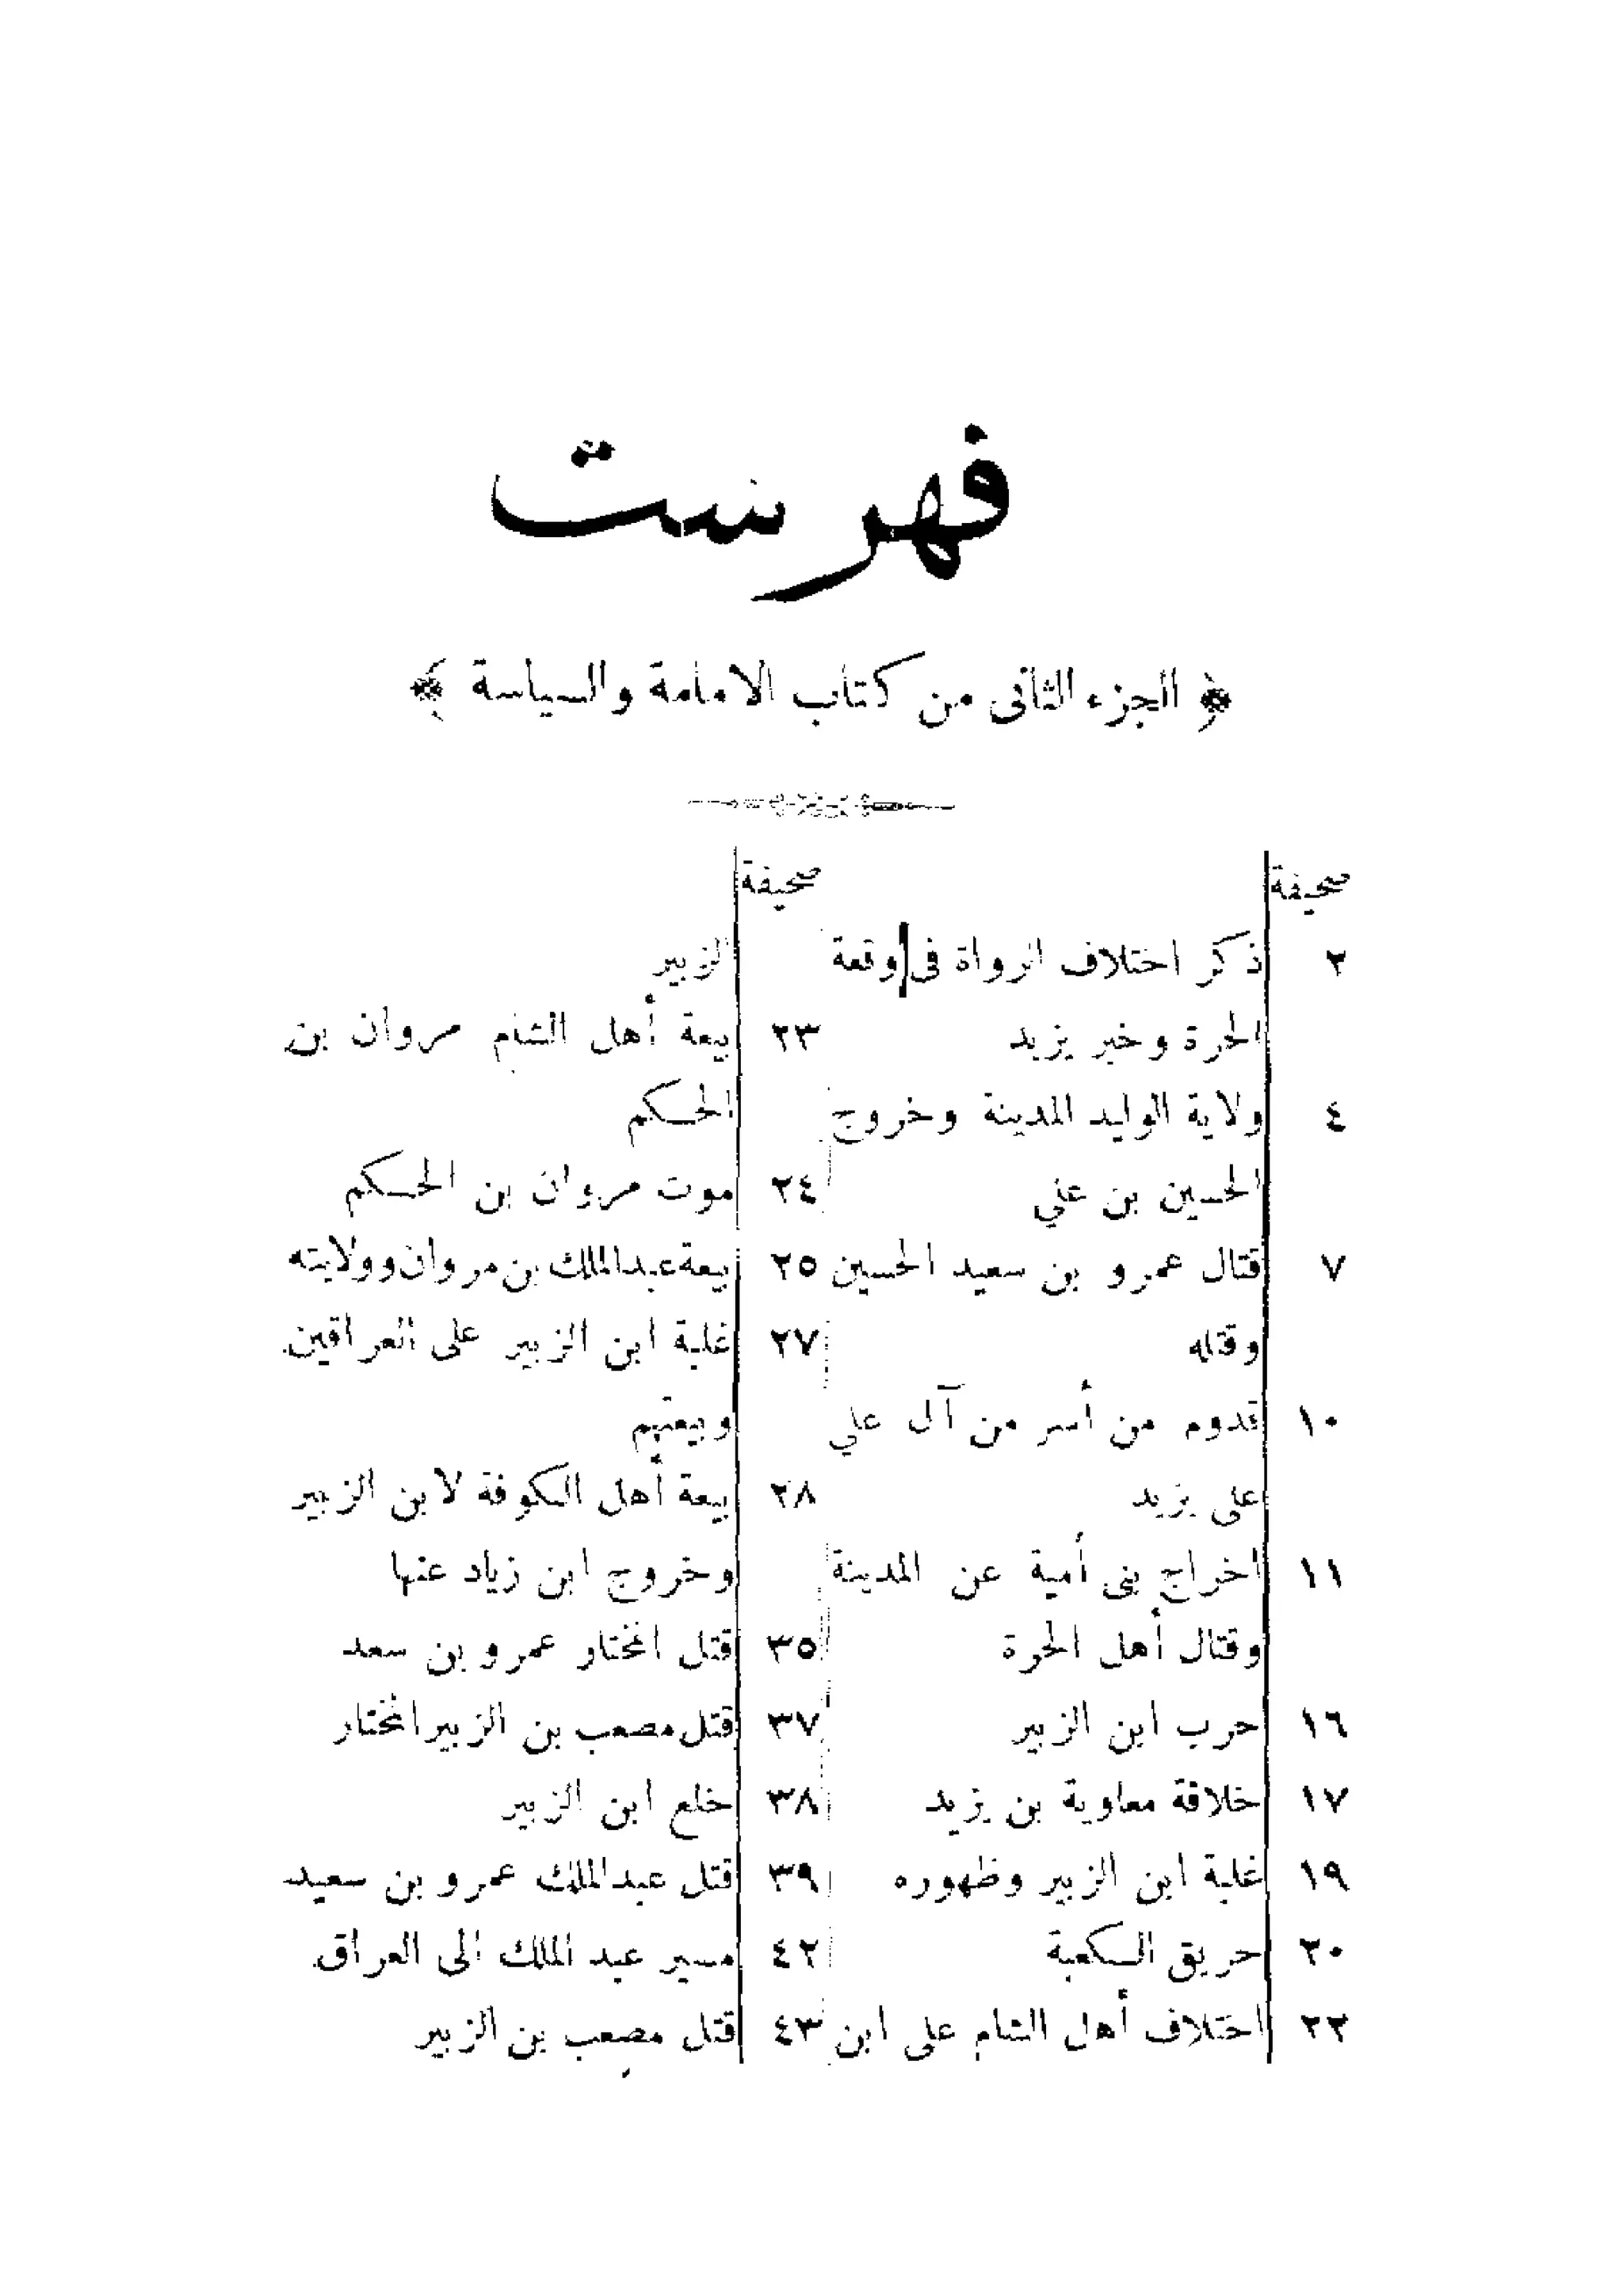 فهرست
﴿ الجزء الثانى من كتاب الامامة والسياسة ﴾
صحيفة
٢ ذكر اختلاف الرواة فى وقعة
الحرة وخبر يزيد
٤ ولاية الوليد المدينة وخروج
الحسين بن علي
٧ قتال عمرو بن سعيد الحسين
وقتله
١٠ قدوم من أسر من آل علي
على يزيد
١١ اخراج بنى أمية عن المدينة
وقتال أهل الحرة
١٦ حرب ابن الزبير
١٧ خلافة معاوية بن يزيد
١٩ غلبة ابن الزبير وظهوره
٢٠ حريق الكعبة
٢٢ اختلاف أهل الشام على ابن
صحيفة
الزبير
٢٣ بيعة أهل الشام مروان بن
الحكم
٢٤ موت مروان بن الحكم
٢٥ بيعة عبد الملك بن مروان وولايته
٢٧ غلبة ابن الزبير على العراقين
وبيعتهم
٢٨ بيعة أهل الكوفة لابن الزبير
وخروج ابن زياد عنها
٣٥ قتل المختار عمرو بن سعد
٣٧ قتل مصعب بن الزبير المختار
٣٨ خلع ابن الزبير
٣٩ قتل عبد الملك عمرو بن سعيد
٤٢ مسير عبد الملك الى العراق
٤٣ قتل مصعب بن الزبير